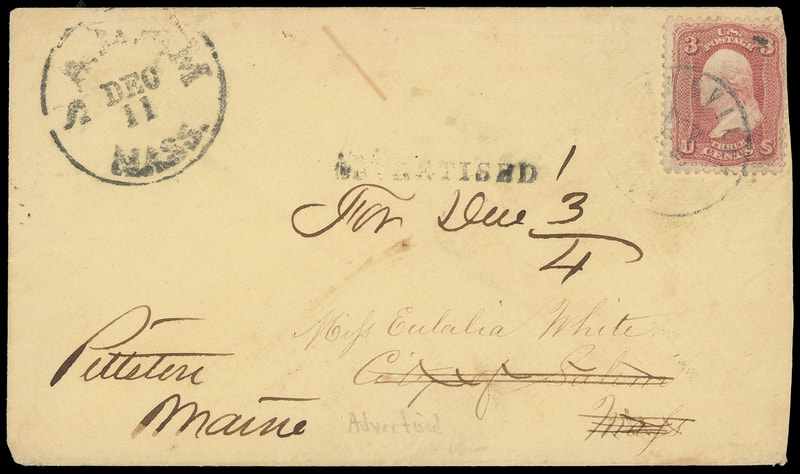 SALEM
DEC
11
MASS.
3 U.S. 3
POSTAGE
U CENTS S
ADVERTISED
1
For Due 3
4
Miss Eulalia White
City of Salem
Mass
Pittston
Maine
Advertised